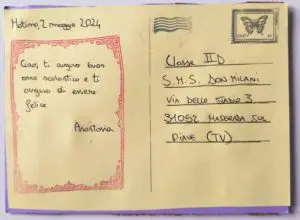 Matino, 2 maggio 2024
Ciao, ti auguro buon
anno scolastico e ti
auguro di essere
felice
Anastasia
Classe II D
S.M.S. DON MILANI
VIA DELLO STADIO 3
31052 MASERADA SUL
PIAVE (TV)